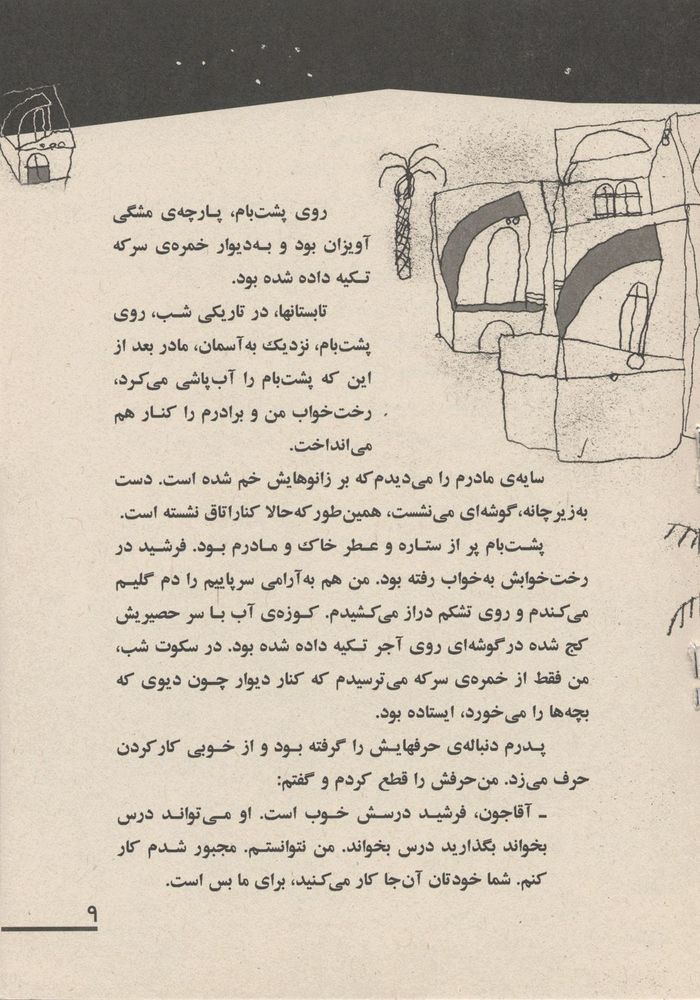 روی پشت‌بام، پارچه‌ی مشگی
آویزان بود و به‌دیوار خمره‌ی سرکه
تکیه داده شده بود.
تابستانها، در تاریکی شب، روی
پشت‌بام، نزدیك به‌آسمان، مادر بعد از
این که پشت‌بام را آب‌پاشی می‌کرد،
رخت‌خواب من و برادرم را کنار هم
می‌انداخت.
سایه‌ی مادرم را می‌دیدم‌که بر زانوهایش خم شده است. دست
به‌زیر چانه، گوشه‌ای می‌نشست، همین‌طور که حالا کنار اتاق نشسته است.
پشت‌بام پر از ستاره و عطر خاك و مادرم بود. فرشید در
رخت‌خوابش به‌خواب رفته بود. من هم به‌آرامی سرپاییم را دم گلیم
می‌کندم و روی تشکم دراز می‌کشیدم. کوزه‌ی آب با سر حصیریش
کج شده در گوشه‌ای روی آجر تکیه داده شده بود. در سکوت شب،
من فقط از خمره‌ی سرکه می‌ترسیدم که کنار دیوار چون دیوی که
بچه‌ها را می‌خورد، ایستاده بود.
پدرم دنباله‌ی حرفهایش را گرفته بود و از خوبی کارکردن
حرف می‌زد. من‌حرفش را قطع کردم و گفتم:
ـ آقاجون، فرشید درسش خوب است. او می‌تواند درس
بخواند بگذارید درس بخواند. من نتوانستم. مجبور شدم کار
کنم. شما خودتان آن‌جا کار می‌کنید، برای ما بس است.
۹